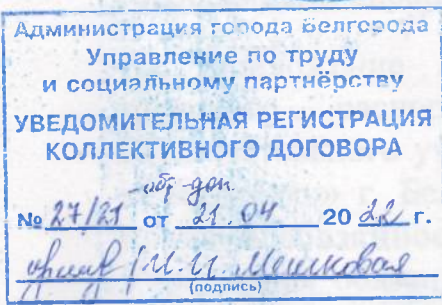 Администрация города Белгорода
Управление по труду
и социальному партнёрству
УВЕДОМИТЕЛЬНАЯ РЕГИСТРАЦИЯ
КОЛЛЕКТИВНОГО ДОГОВОРА
№ 27/21 от 21.04 2022 г.
И.И. Мешковая
(подпись)